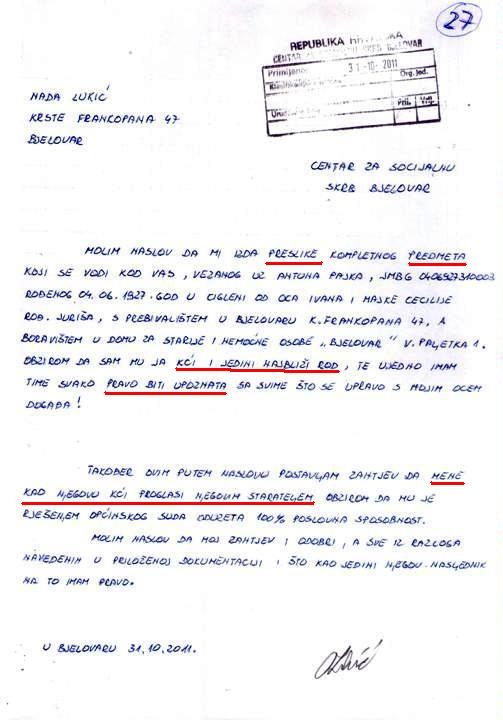 27
REPUBLIKA HRVATSKA
CENTAR ZA SOCIJALNU SKRB BJELOVAR
Primljeno: 31-10-2011
Org. jed.
Pril.
NADA LUKIĆ
KRSTE FRANKOPANA 47
BJELOVAR
CENTAR ZA SOCIJALNU
SKRB BJELOVAR
MOLIM NASLOV DA MI IZDA PRESLIKE KOMPLETNOG PREDMETA
KOJI SE VODI KOD VAS, VEZANOG UZ ANTUNA PAJKA, JMBG 0406927310003
ROĐENOG 04.06.1927.GOD U CIGLENI OD OCA IVANA I MAJKE CECILIJE
ROĐ. JURIŠA, S PREBIVALIŠTEM U BJELOVARU K.FRANKOPANA 47. A
BORAVIŠTEM U DOMU ZA STARIJE I NEMOĆNE OSOBE „BJELOVAR" V. PALJETKA 1.
OBZIROM DA SAM MU JA KĆI I JEDINI NAJBLIŽI ROD, TE UJEDNO IMAM
TIME SVAKO PRAVO BITI UPOZNATA SA SVIME ŠTO SE UPRAVO S MOJIM OCEM
DOGAĐA!
TAKOĐER OVIM PUTEM NASLOVU POSTAVLJAM ZAHTJEV DA MENE
KAO NJEGOVU KĆI PROGLASI NJEGOVIM STARATELJEM OBZIROM DA MU JE
RJEŠENJEM OPĆINSKOG SUDA ODUZETA 100% POSLOVNA SPOSOBNOST.
MOLIM NASLOV DA MOJ ZAHTJEV I ODOBRI, A SVE IZ RAZLOGA
NAVEDENIH U PRILOŽENOJ DOKUMENTACIJI I ŠTO KAO JEDINI NJEGOV NASLJEDNIK
NA TO IMAM PRAVO.
U BJELOVARU 31.10.2011.